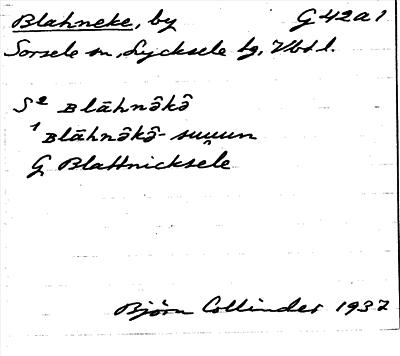 Blahneke, by G 42 a 1
Sorsele sn, Lycksele lg, Vbtl.
S² Blāhnə̂kə̂
¹ Blāhnə̂kə̂-suuun
G Blattnicksele
Björn Collinder 1937